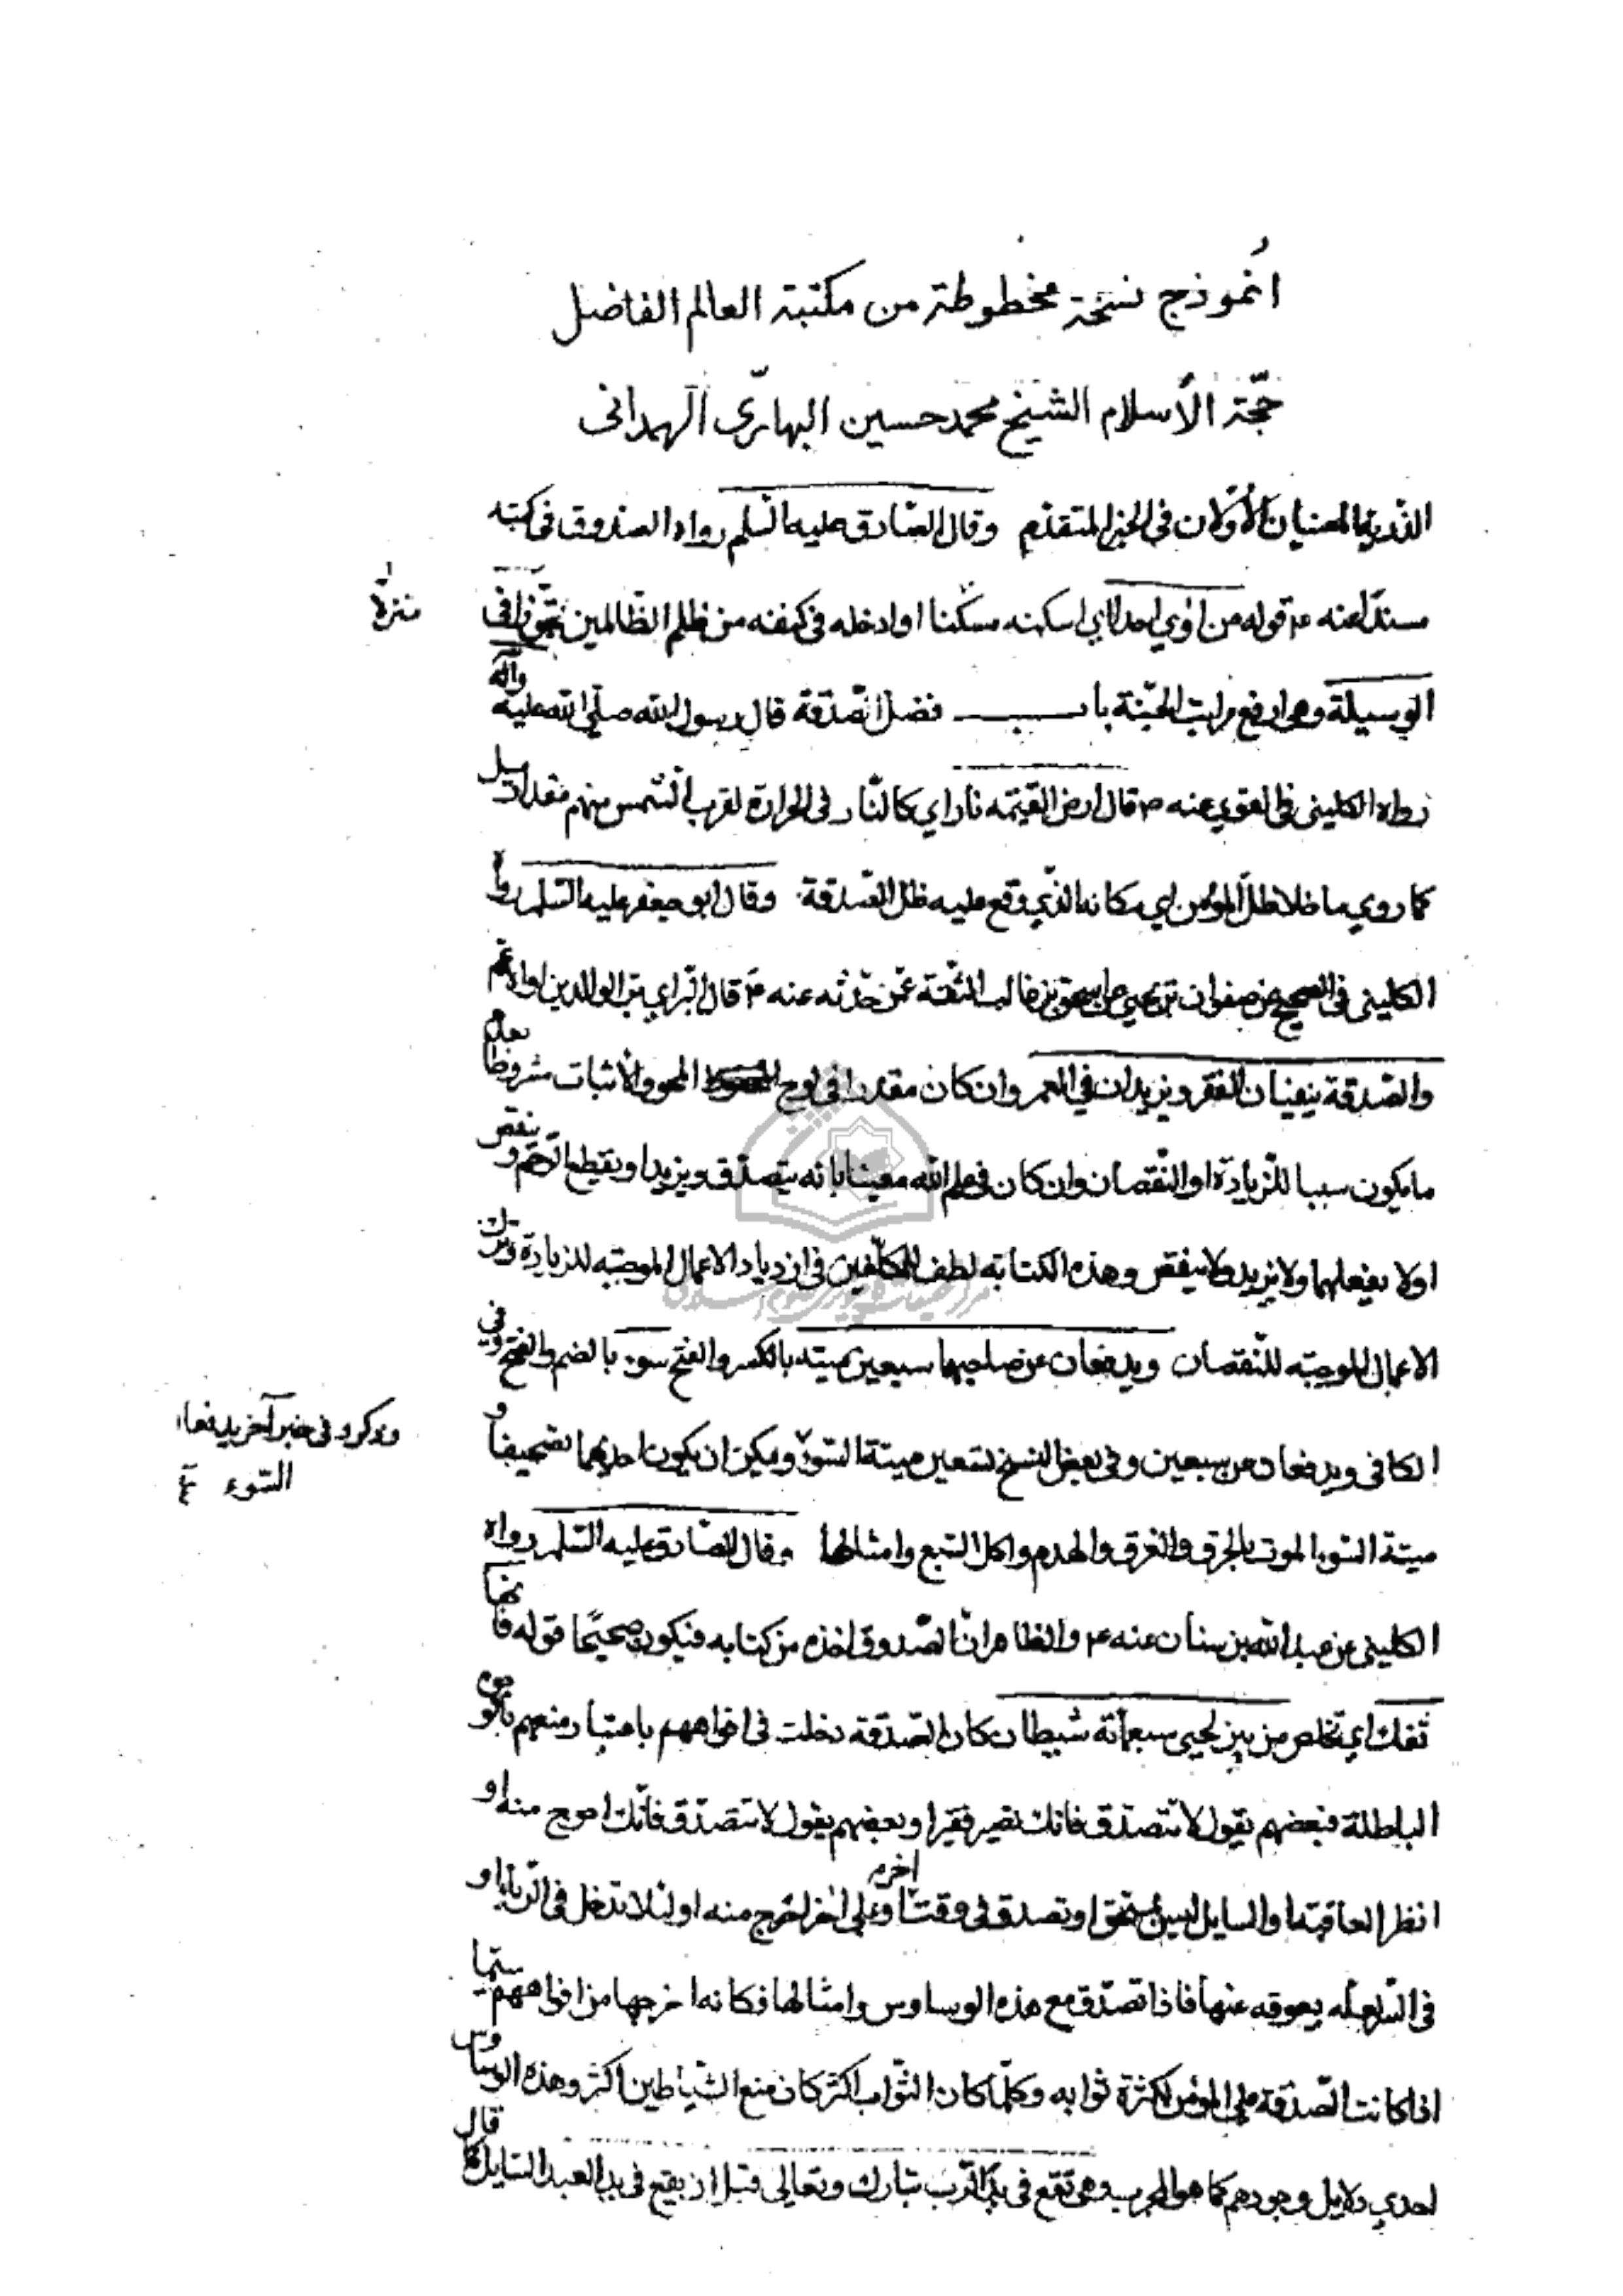 اُنموذج نسخة مخطوطة من مكتبة العالم الفاضل
حجّة الأسلام الشيخ محمد حسين البهاري الهمداني
المعنيان الأولان في الخبر المتقدم وقال الصادق عليه السلم رواه الصدوق في كتبه
مسندا عنه ع قوله من اوي احدا اي اسكنه مسكنا او ادخله في كنفه من ظلم الظالمين
الوسيلة وهي ارفع مراتب الجنة باب فضل الصدقة قال رسول الله صلى الله عليه وآله
رواه الكليني في القوي عنه ص قال ارض القيمة نار اي كالنار في الحرارة لقرب الشمس منهم مقدار ميل
كما روي ما خلا ظل المؤمن اي مكانه الذي وقع عليه ظل الصدقة وقال ابو جعفر عليه السلم رواه
الكليني في الصحيح عن صفوان بن يحيى عن اسحق بن غالب الثقة عمن حدثه عنه ع قال البر اي بر الوالدين او الاعم
والصدقة ينفيان الفقر ويزيدان في العمر وان كان مقدرا في لوح المحو والاثبات مشروطا بعدم
ما يكون سببا للزيادة او النقصان وان كان في علم الله معينا بانه يتصدق ويزيد او يقطع الرحم وينقص
او لا يفعلهما ولا يزيد ولا ينقص وهذه الكتابة لطف للمكلفين في ازدياد الاعمال الموجبة للزيادة وترك
الاعمال الموجبة للنقصان ويدفعان عن صاحبهما سبعين ميتة بالكسر والفتح سوء بالضم والفتح وفي
الكافي ويدفعان عن سبعين وفي بعض النسخ تسعين ميتة السوء ويمكن ان يكون احدهما تصحيفا و
وذكر في خبر آخر يدفعان
السوء
ميتة السوء الموت بالحرق والغرق والهدم واكل السبع وامثالها وقال الصادق عليه السلم رواه
الكليني عن عبد الله بن سنان عنه ع والظاهر ان الصدوق اخذه من كتابه فيكون صحيحا قوله فانها
تفك اي تخلص من بين لحيي سبعمائة شيطان كان الصدقة دخلت في افواههم باعتبار منعهم بالوجوه
الباطلة فبعضهم يقول لا تتصدق فانك تصير فقيرا وبعضهم يقول لا تتصدق فانك احوج منه او
انظر العاقبة او السايل ليس بمستحق او تصدق في وقت آخر وعلى اخر احوج منه او لئلا تدخل في الريا او
في السمعة يعوقه عنها فاذا تصدق مع هذه الوساوس وامثالها فكانه اخرجها من افواههم سيما
اذا كانت الصدقة على المؤمن لكثرة ثوابه وكلما كان الثواب اكثر كان منع الشياطين اكثر وهذه الوساوس
احدي دلايل وجودهم كما هو المجرب وهي تقع في يد الرب تبارك وتعالى قبل ان يقع في يد العبد السايل كما قال